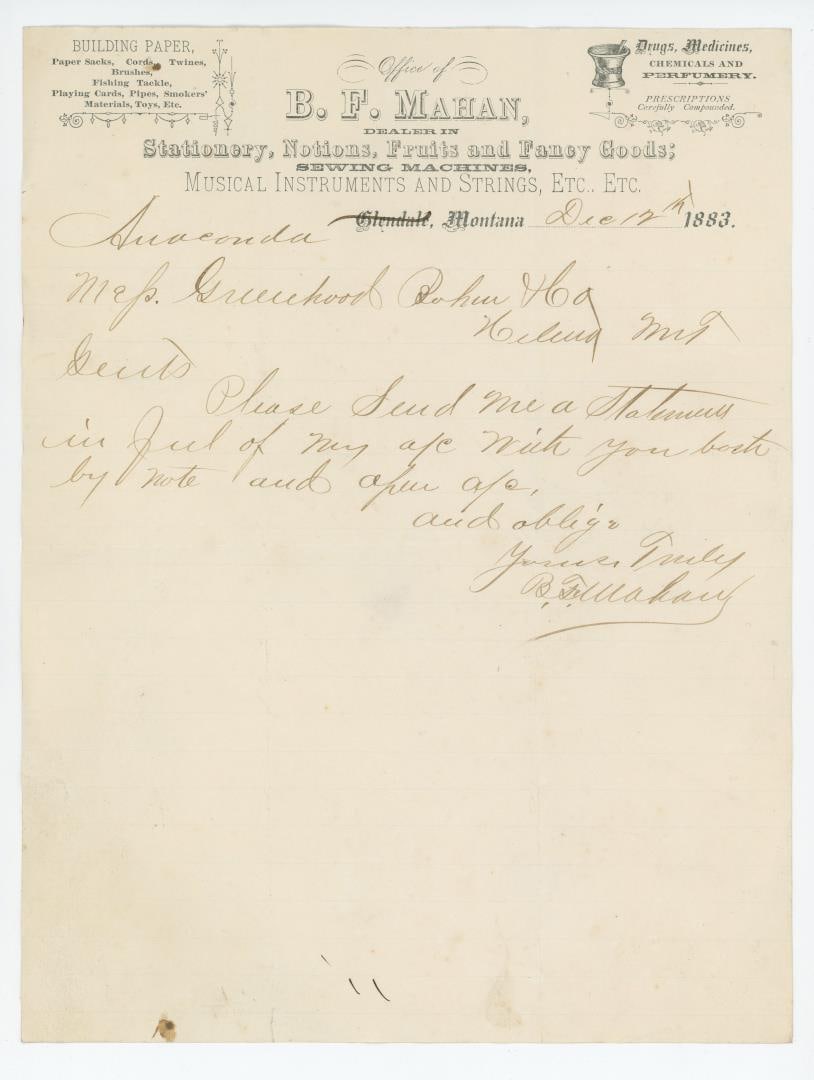 BUILDING PAPER,
Paper Sacks, Cords, Twines,
Brushes,
Fishing Tackle,
Playing Cards, Pipes, Smokers'
Materials, Toys, Etc.
Office of
B. F. MAHAN,
DEALER IN
Stationery, Notions, Fruits and Fancy Goods;
SEWING MACHINES,
MUSICAL INSTRUMENTS AND STRINGS, ETC., ETC.
Drugs, Medicines,
CHEMICALS AND
PERFUMERY.
PRESCRIPTIONS
Carefully Compounded.
Anaconda Glendale, Montana Dec 12th 1883.
Mess. Greenhood Bohm & Co
Helena MT
Gents
Please Send me a Statement
in full of my a/c with you both
by note and open a/c,
and oblige
Yours Truly
B. F. Mahan